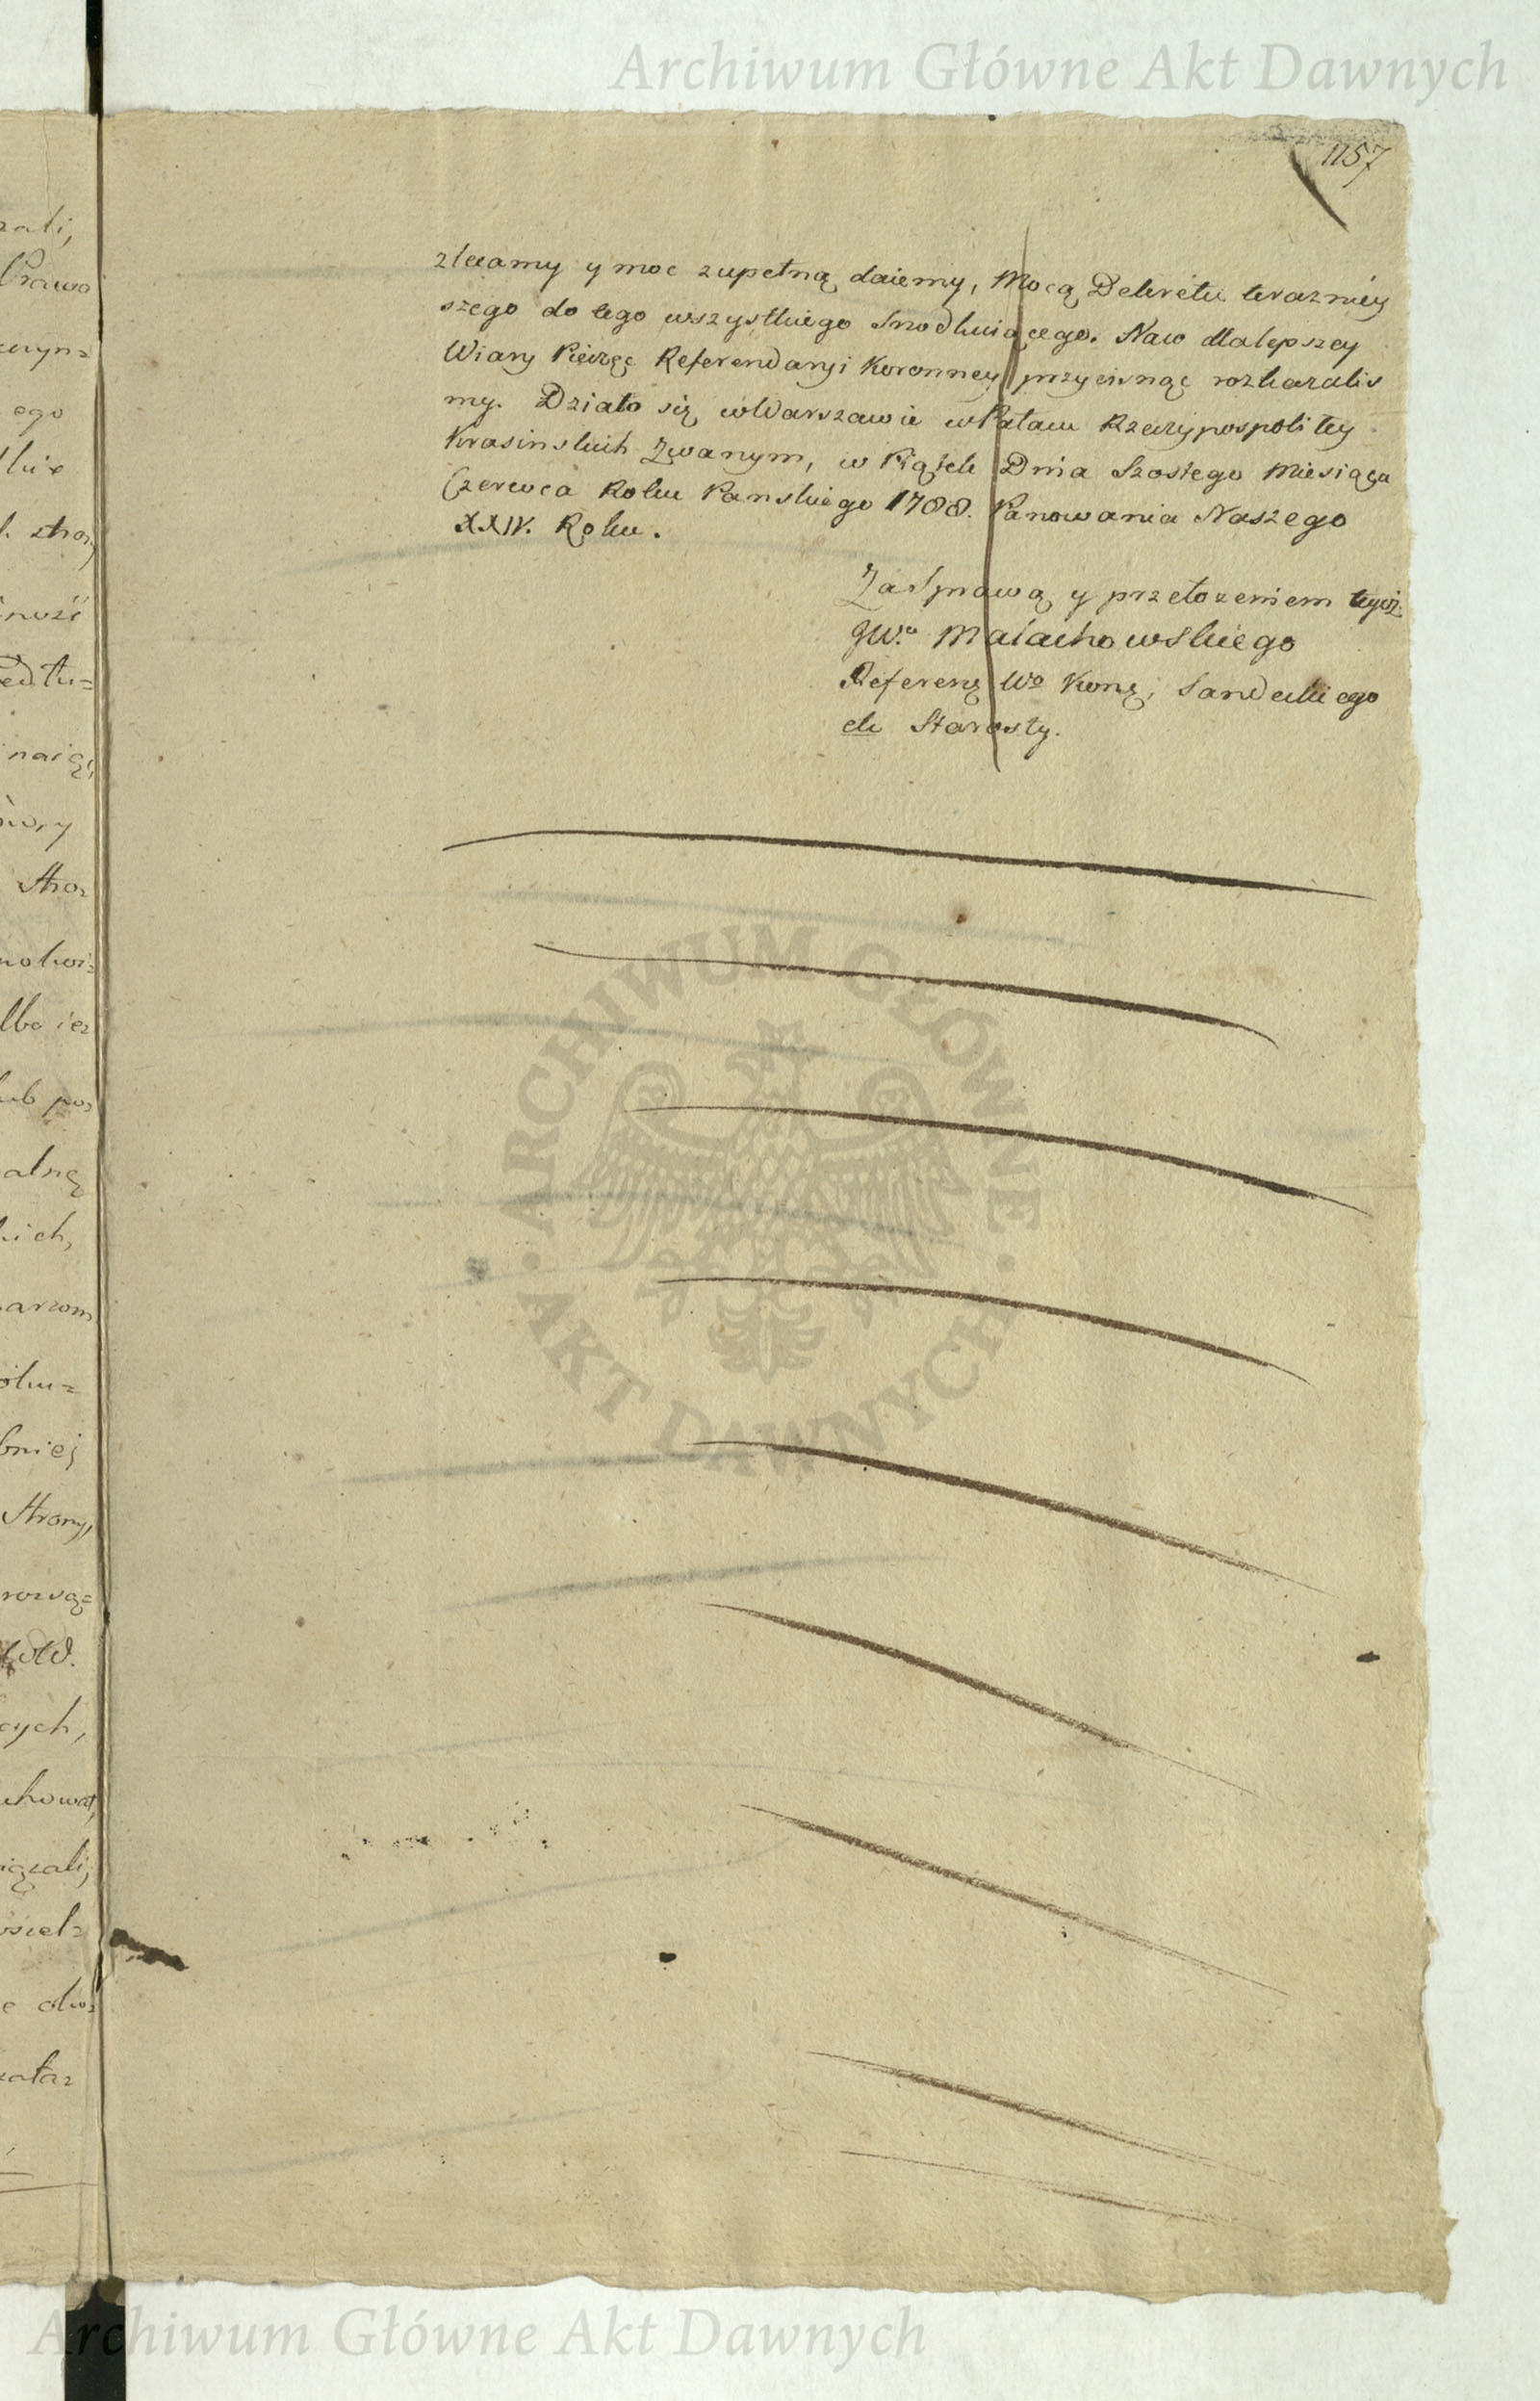 Archiwum Główne Akt Dawnych
1157
zlecamy y moc zupełną daiemy, Mocą Dekretu teraznieỳ
szego do tego wszystkiego Srzodkuiącego. Naco dla lepszey
Wiary Pieczęć Referendaryi Koronney przycisnąć rozkazaliś
my. Działo się w Warszawie w Pałacu Rzeczypospolitey
Krasinskich Zwanym, w Piątek Dnia Szostego Miesiąca
Czerwca Roku Panskiego 1788. Panowania Naszego
XXIV. Roku.
Za Sprawą y przełożeniem tegoż
JWo Małachowskiego
Referen Wo Kor: Sandeckiego
etc Starosty.
ARCHIWUM GŁÓWNE · AKT DAWNYCH ·
zali,
Prawa
ego
noźć
Stro=
lub po=
ich,
bniej
Strony,
cych,
Archiwum Główne Akt Dawnych